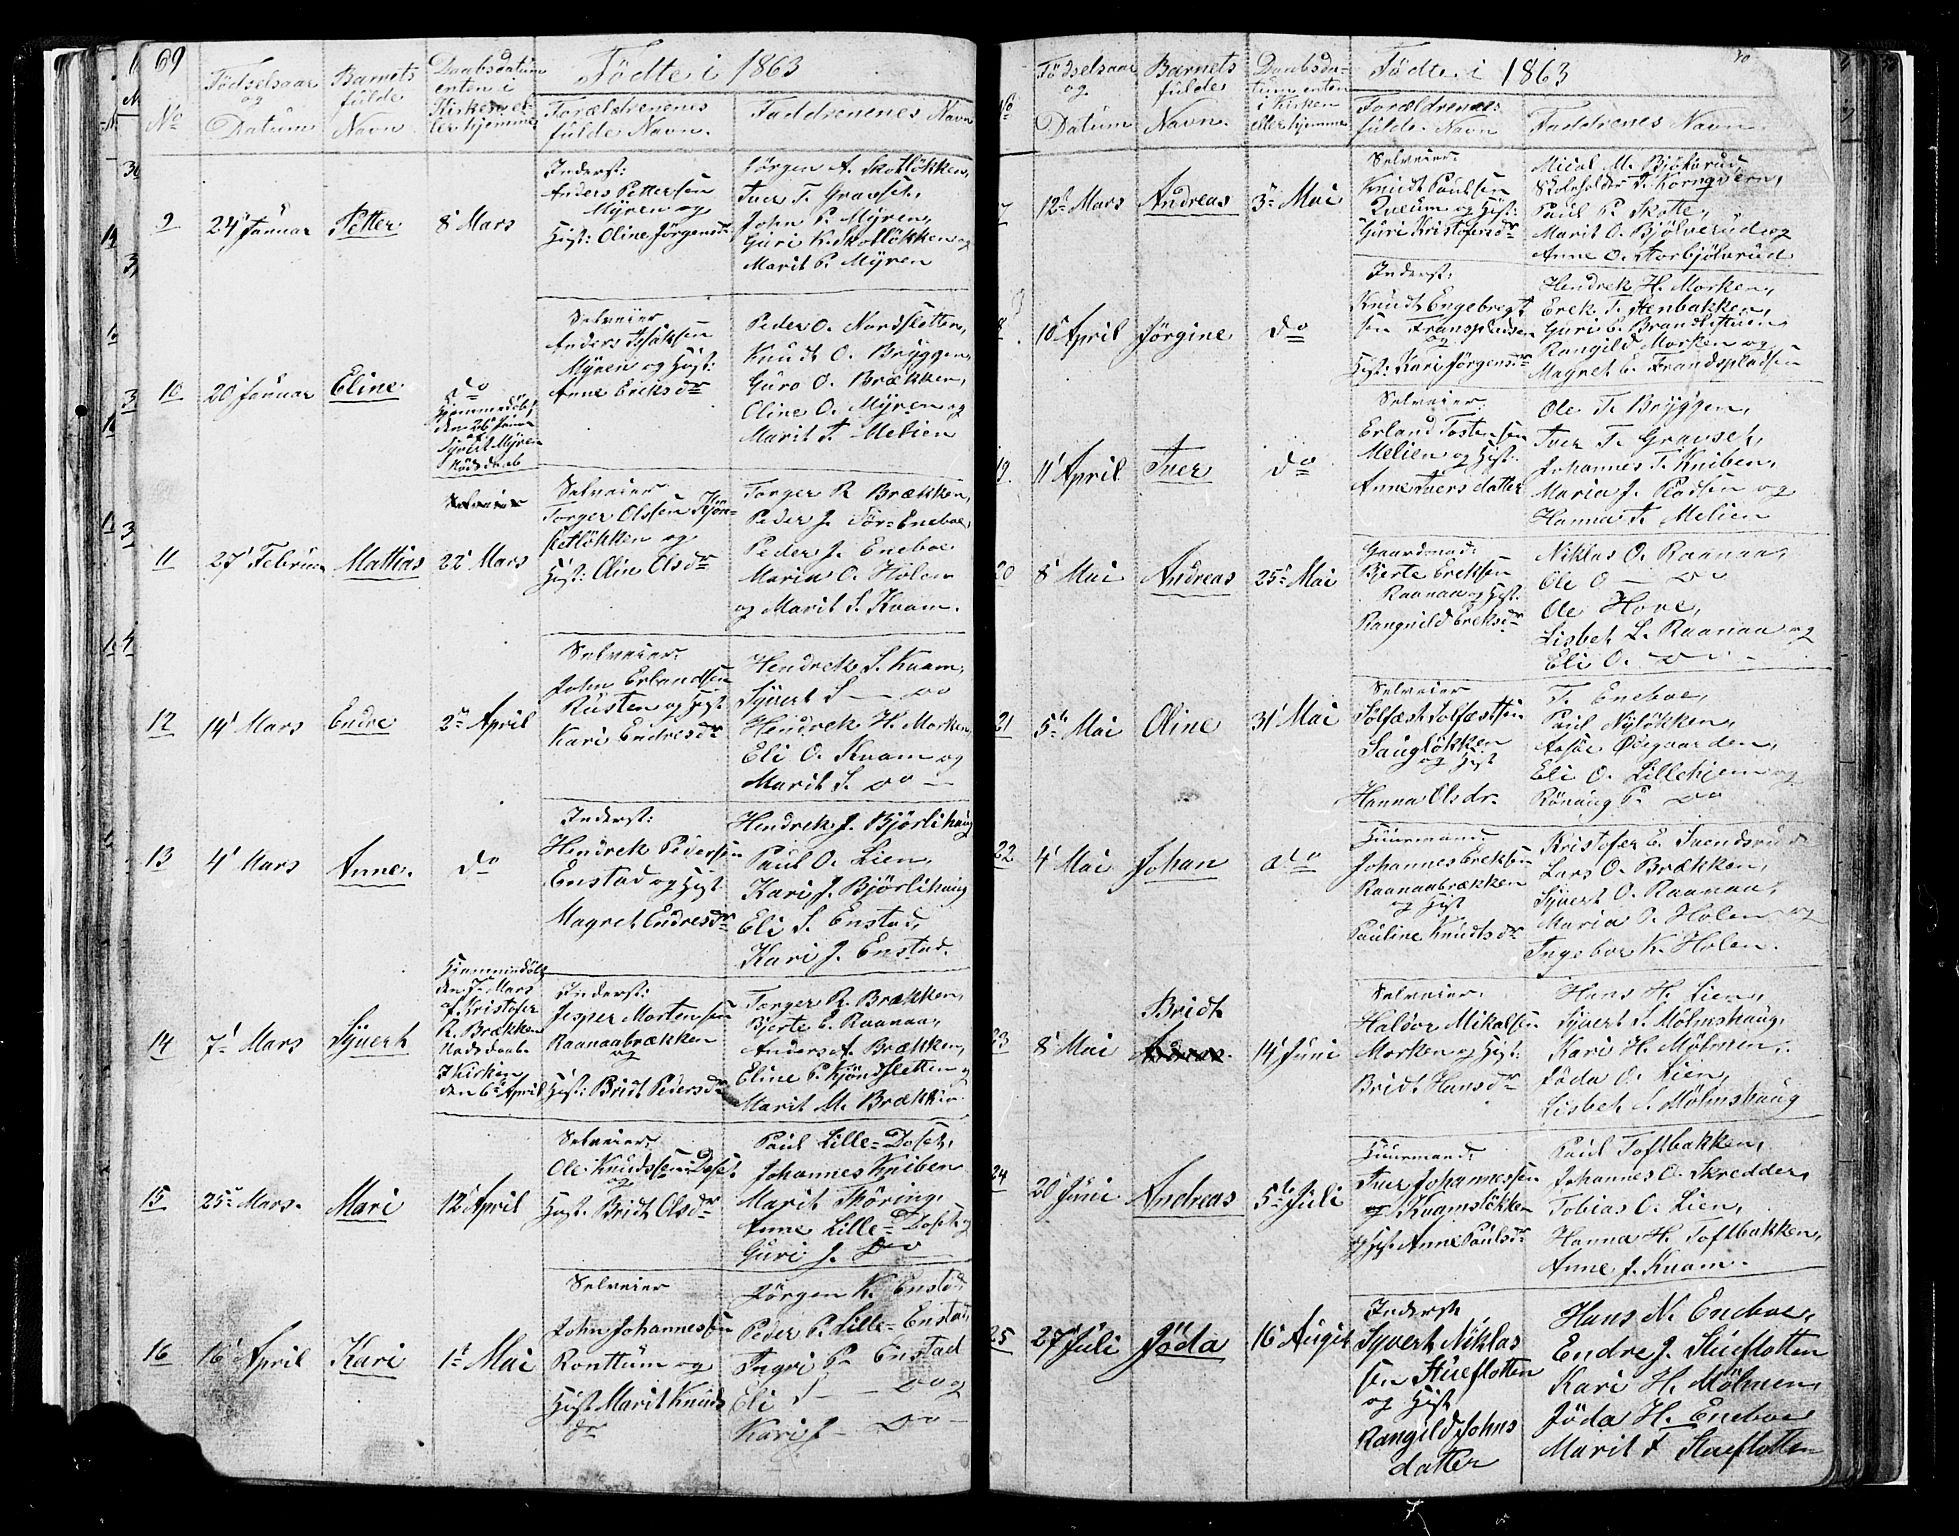 69
No
Fødselsaar
og
Datum
Barnets
fulde
Navn
Daabsdatum
enten i
Kirken el-
ler hjemme
Fødte i 1863
Forældrenenes
fulde Navn.
Faddrenenes Navn
9
24 Januar
Petter
8 Mars
Inderst:
Anders Pettersen
Myren og
Hust: Oline Jørgensdr
Jørgen A. Skotløkken,
Iver T. Gravset,
John P. Myren,
Guri K. Skotløkken og
Marit P. Myren
10
20 Januar
Eline
do
Hjemmedøbt
den 26 Januar
af
Syvert Myren
Nöddaab
Selveier
Anders Isaksen
Myren og Hust:
Anne Eriksdr
Peder O. Nordsletten,
Knudt O. Bryggen,
Guro O. Brækken,
Oline O. Myren og
Marit T. Melien
11
27 Februar
Mathias
22 Mars
Selveier
Torger Olssen
og
Hust: Olin Olsdr
Torger R. Brækken,
Peder J. Sör-Eneboe,
Peder J. Eneboe
Maria O. Holen
og Marit S. Kvam.
12
14 Mars
Endre
2n April
Selveier:
John Erlandsen
Rusten og Hust
Kari Endresdr
Hendrek S. Kvam,
Syvert S — do
Hendrek H. Morken,
Eli O. Kvam og
Marit S. do —
13
4 Mars
Anne.
do
Inderst:
Hendrek Pedersen
Enstad og Hust
Magret Endresdr
Hendrek J. Bjørlihaug
Paul O. Lien,
Kari J. Bjørlihaug
Eli S. Enstad,
Kari J. Enstad.
14
7 Mars
Syvert
Hjemmedøbt
den 7 Mars
af Kristofer
R. Brækken
Nödsdaab.
I Kirken
den 6 April
Inderst:
Jesper Mortensen
Raanaabrækken
og
Hust: Bridt Pedersdr
Torger R. Brækken,
Bjerte E. Raanaa,
Anders A. Brækken,
Eline P. Kjöndsletten og
Marit M. Brækken
15
25 Mars.
Mari
12 April
Selveier:
Ole Knudssen Doset
og
Hust. Bridt Olsdr
Paul Lille-Doset,
Johannes Kniben
Marit Thöring,
Anne Lille-Doset og
Guri J. Do
16
16 April
Kari
1t Mai
Selveier
John Johannessen
Ronttum og
Hust Marit Knuds
dr
Jørgen K. Enstad,
Peder P. Lille-Enstad,
Ingri P. Enstad
Eli S — do og
Kari J — Do —
70
No
Fødselsaar
og
Datum
Barnets
fulde
Navn.
Daabsda-
tum enten
i Kirken
eller hjemme
Fødte i 1863
Forældrenes
fulde Navn
Faddrenes Navn
7
12 Mars
Andreas
3n Mai
Selveier:
Knudt Paulsen
og Hust:
Guri Kristofersdr
Micol M. Bjölverud
Skoleholder T. Kornqvern,
Paul P. Skotte,
Marit O. Bjölverud og
Anne O. Storbjölverud
8
10 April
Jørgine
do
Inderst:
Knudt Engebregt
sen Franspladsen
og
Hust: Kari Jørgensdr
Hendrek H. Morken,
Erek T. Stenbakken,
Guri E. Brandlistuen,
Rangild Morken og
Magret E. Frandspladsen
19.
11 April
Iver
do
Selveier
Erland Tostensen
Melien og Hust:
Anne Iversdatter
Ole T. Bryggen,
Iver T. Gravset,
Johannes T. Kniben,
Maria J. Pladsen og
Hanna T. Melien
20
8 Mai
Andreas
25 Mai
Gaardmand:
Bjerte Ereksen
Raanaa og Hust.
Rangnild Ereksdr
Niklas O. Raanaa,
Ole O — do
Ole Hove,
Lisbet L. Raanaa og
Eli O. do —
21
5te Mai
Oline
31 Mai
Selveier
Solfæst Solfæstsen
Saugløkken
og Hust
Hanna Olsdr
T. Eneboe,
Paul Nyløkken,
Øvegaarden,
Eli O. Lillehjem og
Rönnug P. Do
22
4 Mai
Johan
do
Huusmand:
Johannes Ereksen
Raanaabrækken
og Hust
Pauline Knudtsdr
Kristofer E. Svendsrud
Lars O. Brækken,
Syvert O. Raanaa,
Maria O. Holen og
Ingebor K. Holen.
23
8 Mai
Bridt
Andreas
14 Juni
Selveier.
Haldor Mikalsen
Morken og Hust:
Bridt Hansdr
Hans H. Lien,
Syvert S. Mölmshaug,
Kari H. Mölmen,
Jöda O. Lien,
Lisbet S. Mölmshaug
24
20 Juni
Andreas
5te Juli
Huusmand:
Iver Johannessen
Kvamsløkken
og Hust Anne Paulsdr
Paul Toftbakken,
Johannes O. Skredder,
Tobias O. Lien,
Hanna H. Toftbakken,
Anne J. Kvam.
25
27 Juli
Jöda
16 August
Inderst
Syvert Niklas
sen Stueflotten
og Hust
Rangild Johns
datter
Hans N. Eneboe,
Endre J. Stueflotten
Kari H. Mölmen,
Jöda H. Eneboe
Marit T Stueflotten